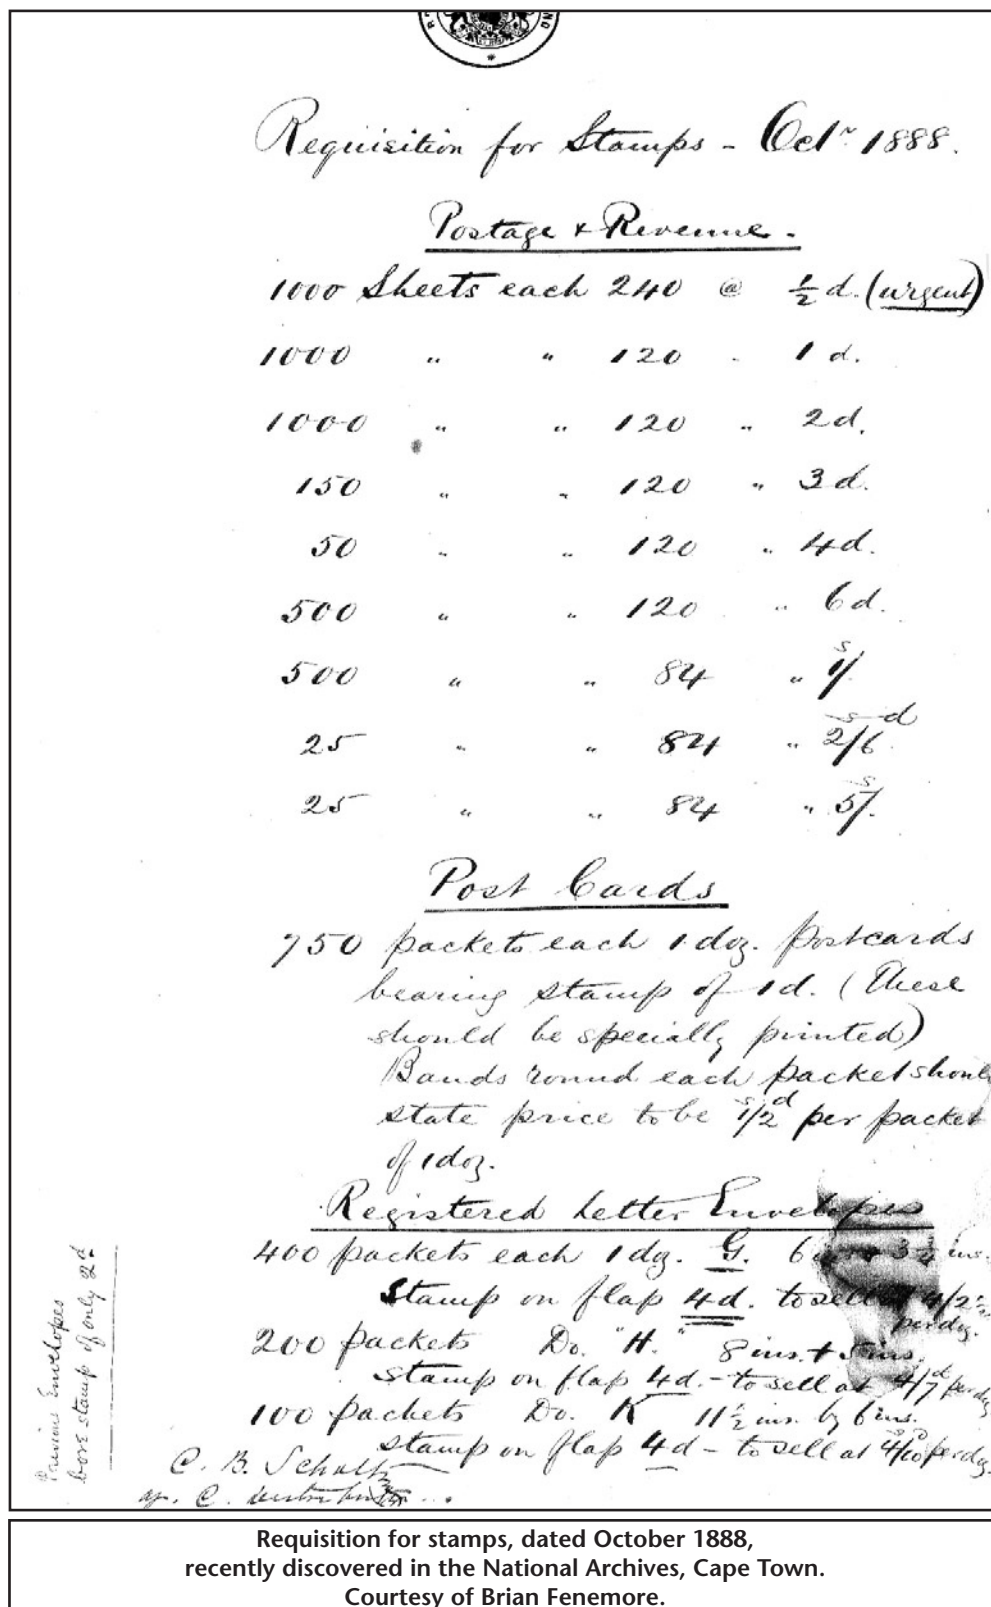 Requisition for Stamps - Octr 1888.
Postage & Revenue.
1000 Sheets each 240 @ ½ d. (urgent)
1000 " " 120 " 1 d.
1000 " " 120 " 2d.
150 " " 120 " 3d.
50 " " 120 " 4d.
500 " " 120 " 6d.
500 " " 84 " 1s/.
25 " " 84 " 2s/6d
25 " " 84 " 5s/.
Post Cards
750 packets each 1 doz. postcards
bearing stamp of 1d. (These
should be specially printed)
Bands round each packet shoul
state price to be 1s/2d per packet
of 1 doz.
Registered Letter Envelopes
400 packets each 1 dz. G. 6 ins.
Stamp on flap 4d. to sell at 4/2½
per dz.
200 packets Do. "H." 8 ins. + 5 ins.
stamp on flap 4d. - to sell at 4/7d per dz
100 packets Do. K 11½ ins. by 6 ins.
stamp on flap 4d - to sell at 4/10 per dz.
Previous Envelopes
bore stamp of only 2d
C. B. Scholtz
Requisition for stamps, dated October 1888,
recently discovered in the National Archives, Cape Town.
Courtesy of Brian Fenemore.